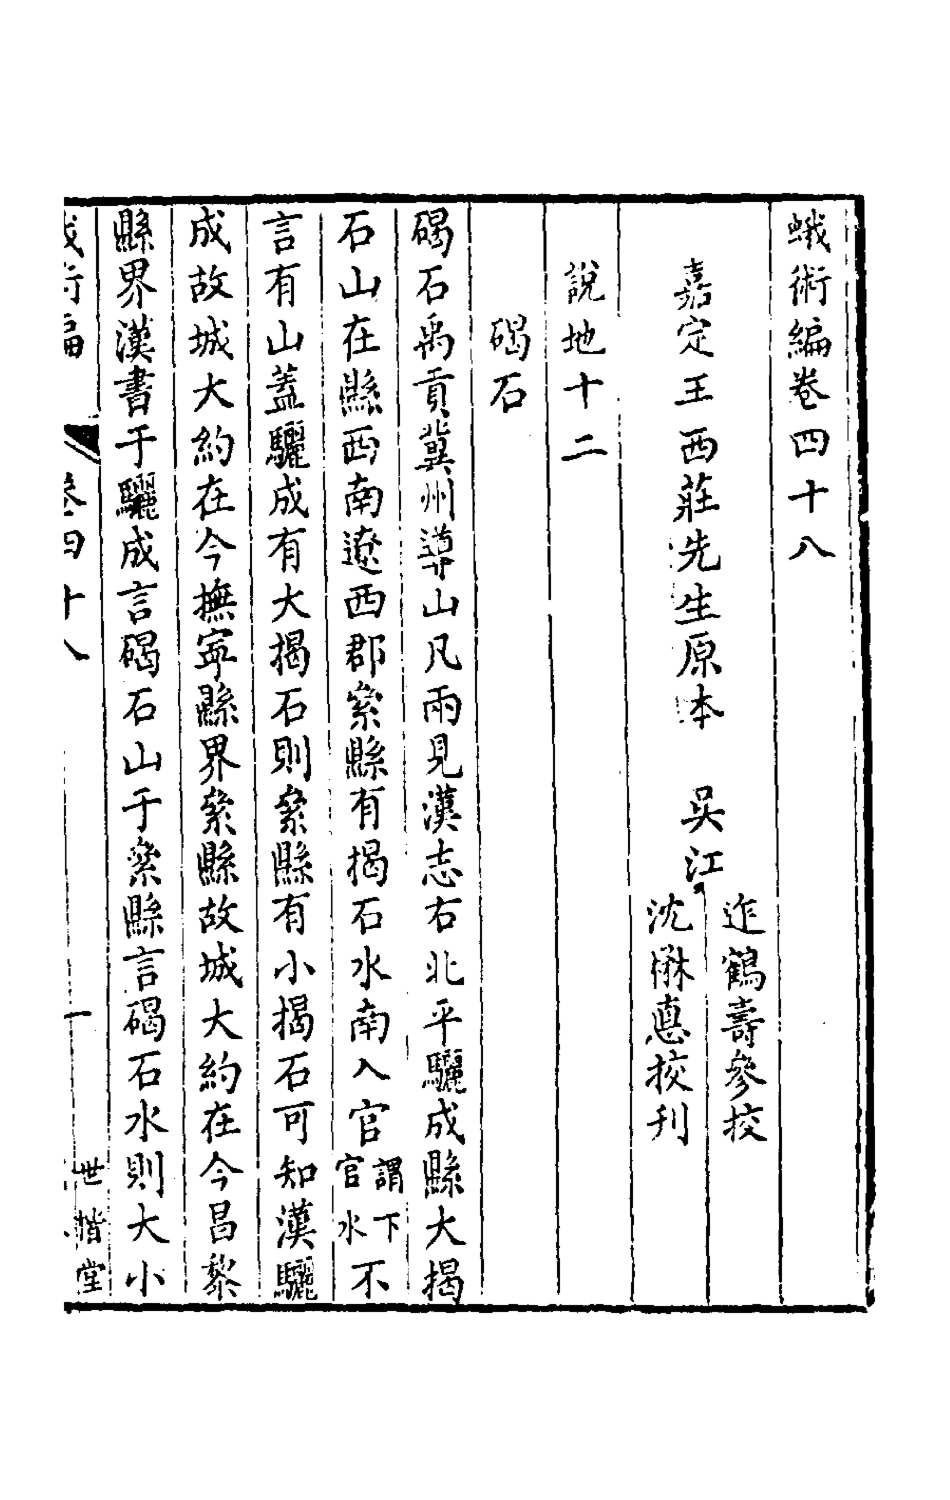 蛾術編卷四十八
嘉定王西莊先生原本　吳江
迮鶴壽參挍
沈楙悳挍刊
說地十二
碣石
碣石禹貢冀州導山凡兩見漢志右北平驪成縣大揭
石山在縣西南遼西郡絫縣有揭石水南入官謂下官水不
言有山蓋驪成有大揭石則絫縣有小揭石可知漢驪
成故城大約在今撫寧縣界絫縣故城大約在今昌黎
縣界漢書于驪成言碣石山于絫縣言碣石水則大小
蛾術編　卷四十八　一　世楷堂